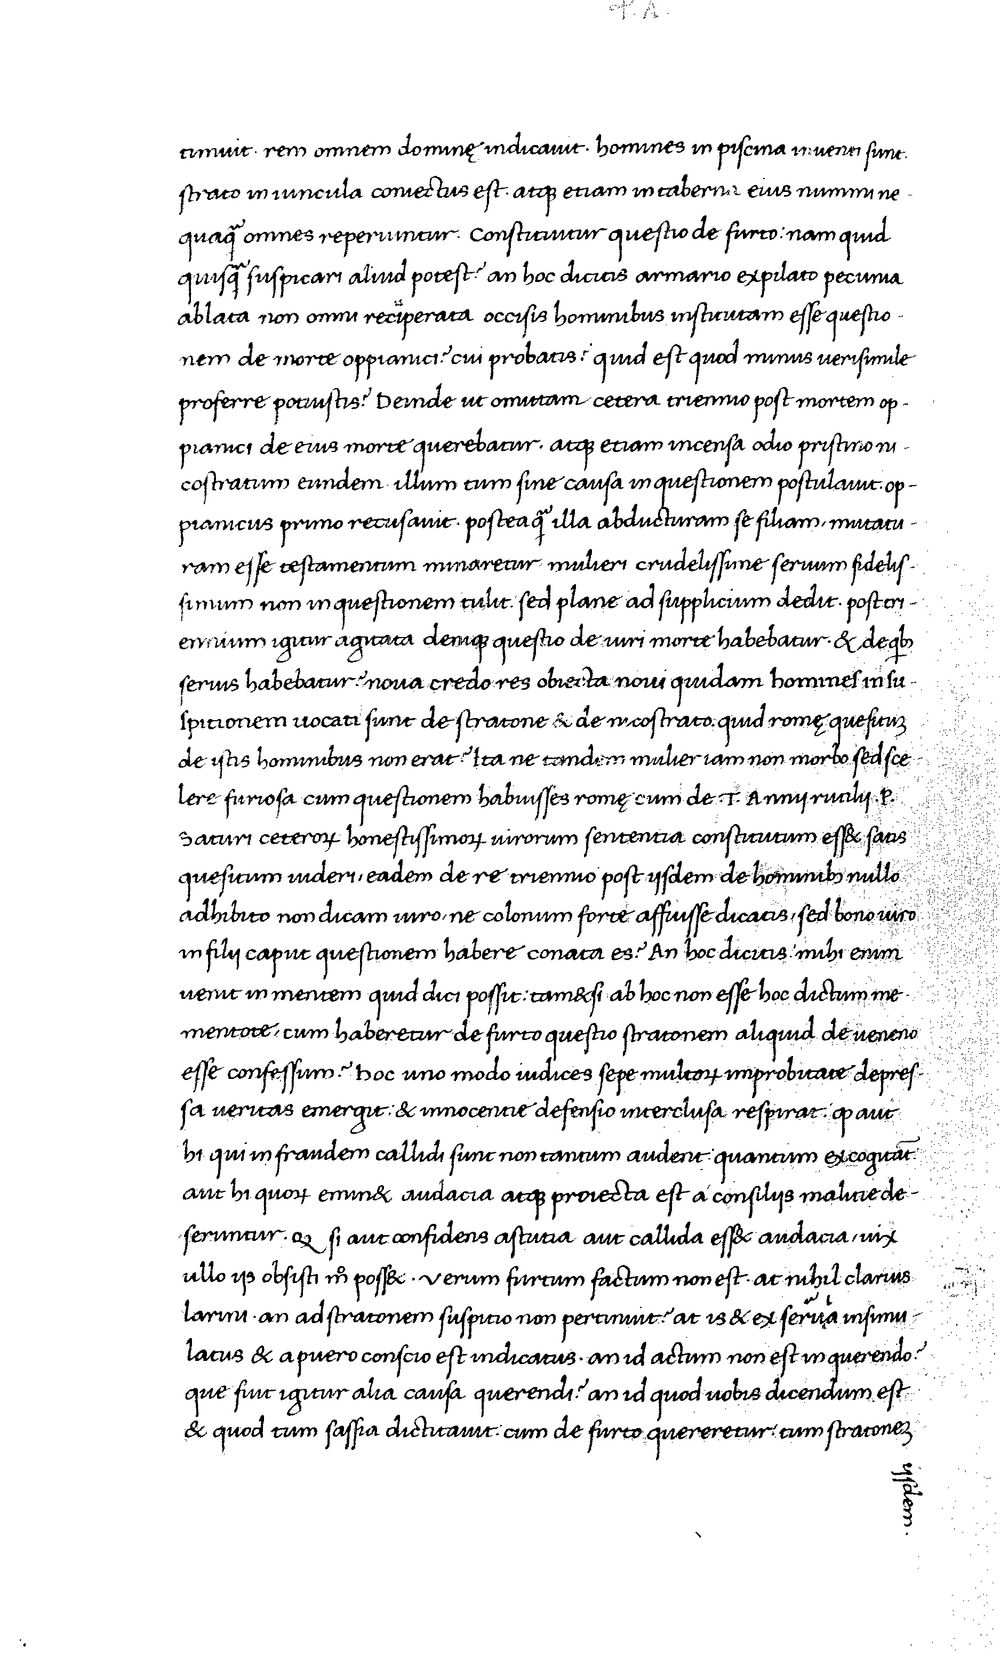 timuit. rem omnem dominę indicauit. homines in piscina inuenti sunt.
strato in uincula coniectus est. atqꝫ etiam in taberna eius nummi ne-
quaq̃ omnes reperiuntur. Constituitur questio de furto: nam quid
quisq̃ suspicari aliud potest? an hoc dicitis armario expilato pecunia
ablata non omni reciperata occisis hominibus institutam esse questio-
nem de morte oppianici? cui probatis? quid est quod minus uerisimile
proferre potuistis? Deinde ut omittam cetera triennio post mortem op-
pianici de eius morte querebatur. atqꝫ etiam incensa odio pristino ni-
costratum eundem illum tum sine causa in questionem postulauit. op-
pianicus primo recusauit. posteaq̃ illa abducturam se filiam, mutatu-
ram esse testamentum minaretur mulieri crudelissime seruum fidelis-
simum non in questionem tulit. sed plane ad supplicium dedit. post tri-
ennium igitur agitata deniqꝫ questio de uiri morte habebatur. & de qb
seruis habebatur? noua credo res obiecta noui quidam homines in su-
spitionem uocati sunt de stratone & de nicostrato. quid romę quesituꝫ
de istis hominibus non erat? Ita ne tandem mulier iam non morbo sed sce-
lere furiosa cum questionem habuisses romę cum de .T. Annij rutilij .P.
Saturi ceteroꝝ honestissimoꝝ uirorum sententia constitutum ess& satis
quesitum uideri, eadem de re triennio post ijsdem de hominibꝫ nullo
adhibito non dicam uiro, ne colonum forte affuisse dicatis, sed bono uiro
in filij caput questionem habere conata es? An hoc dicitis: mihi enim
uenit in mentem quid dici possit: tam&si ab hoc non esse hoc dictum me-
mentote, cum haberetur de furto questio stratonem aliquid de ueneno
esse confessum? hoc uno modo iudices sepe multoꝝ improbitate depres-
sa ueritas emergit: & innocentie defensio interclusa respirat: ꝙ aut
hi qui in fraudem callidi sunt non tantum audent quantum excogitāt:
aut hi quoꝝ emin& audacia atqꝫ proiecta est a consilijs malitie de-
seruntur. Q si aut confidens astutia aut callida ess& audacia, uix
ullo ijs obsisti m̊ poss&. Verum furtum factum non est. at nihil clarius
larini. an ad stratonem suspitio non pertinuit? at is & ex serrula insimu-
latus & a puero conscio est indicatus. an id actum non est in querendo?
que fuit igitur alia causa querendi? an id quod uobis dicendum est
& quod tum sassia dictitauit. cum de furto quereretur: tum stratoneꝫ
ijsdem.